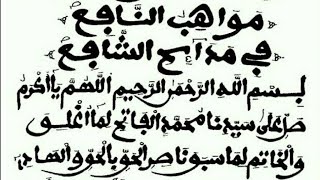 مَوَاهِبُ النَّافِعْ
فِي مَدَائِحِ الشَّافِعْ
بِسْمِ اللهِ الرَّحْمَنِ الرَّحِيمِ اللَّهُمَّ يَا أَكْرَمُ
صَلِّ عَلَى سَيِّدِنَا مُحَمَّدٍ الْفَاتِحِ لِمَا أُغْلِقَ
وَالْخَاتِمِ لِمَا سَبَقَ نَاصِرِ الْحَقِّ بِالْحَقِّ وَالْهَادِي